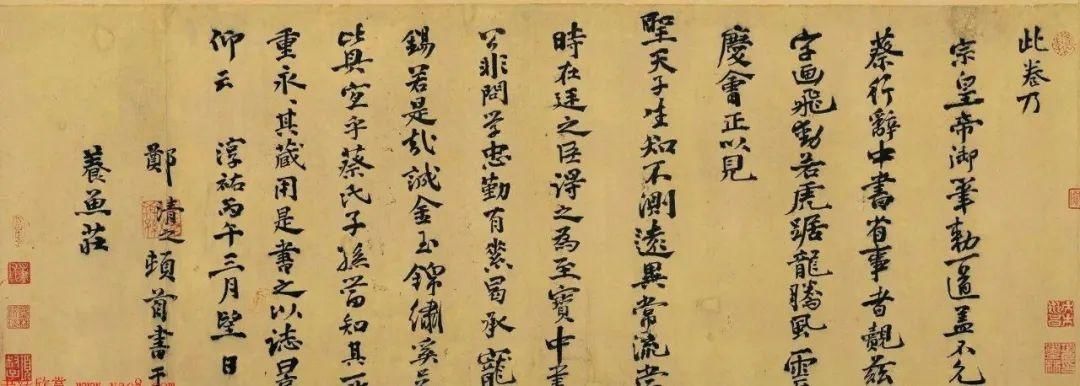 此卷乃
宗皇帝御筆勅一道盖不久
蔡行辭中書省事者覩茲
字画飛動若虎踞龍騰風雲
慶會正以見
聖天子生知不測遠異常流當
時在廷之臣得之為至寶中書
公非問学忠勤有素曷承寵
錫若是哉誠金玉錦繡奚
此其宜乎蔡氏子孫當知其
重永其藏用是書之以誌
仰云 淳祐丙午三月望日
鄭清之頓首書于
養魚莊